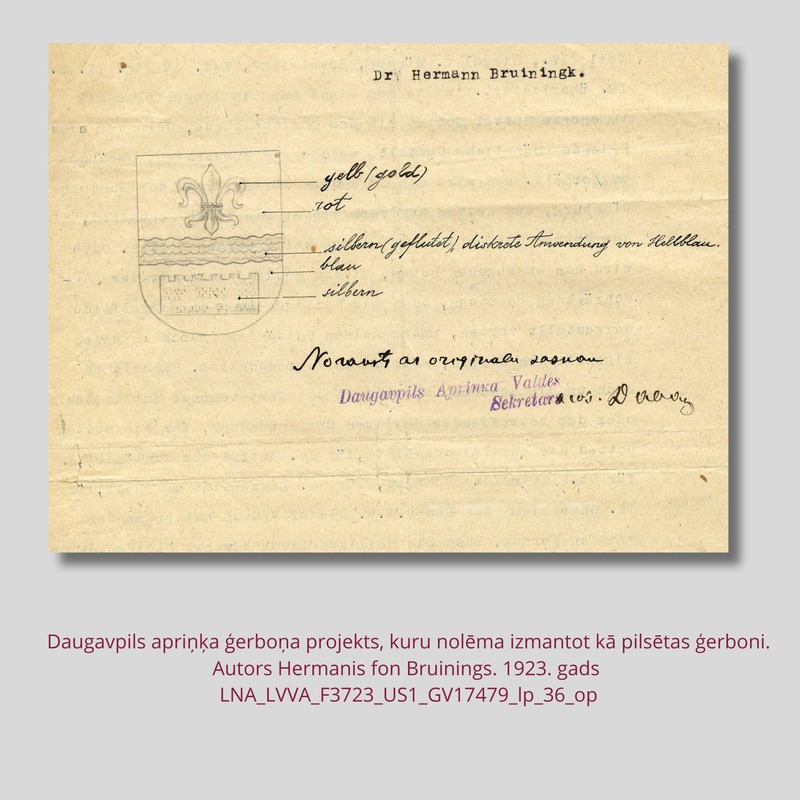 Dr. Hermann Bruiningk.
gelb (gold)
rot
silbern (geflutet), diskrete Anwendung von Hellblau.
blau
silbern
Noraksts ar originalu saskan
Daugavpils Apriņķa Valdes
Sekretars
Daugavpils apriņķa ģerboņa projekts, kuru nolēma izmantot kā pilsētas ģerboni.
Autors Hermanis fon Bruinings. 1923. gads
LNA_LVVA_F3723_US1_GV17479_lp_36_op